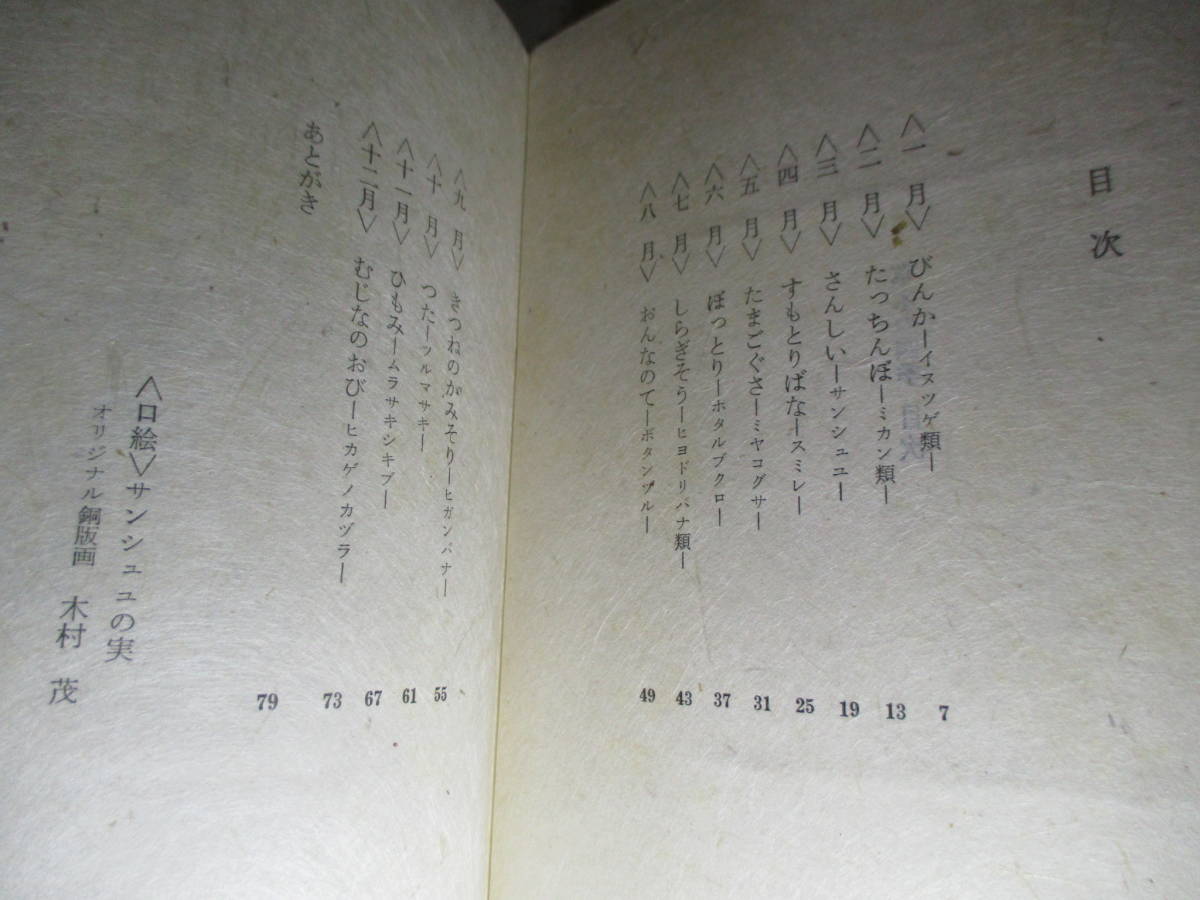 目次
〈一月〉びんかーイヌツゲ類ー 7
〈二月〉たっちんぽーミカン類ー 13
〈三月〉さんしいーサンシュユー 19
〈四月〉すもとりばなースミレー 25
〈五月〉たまごぐさーミヤコグサー 31
〈六月〉ぽっとりーホタルブクロー 37
〈七月〉しらぎそうーヒヨドリバナ類ー 43
〈八月〉おんなのてーボタンヅルー 49
〈九月〉きつねのかみそりーヒガンバナー 55
〈十月〉つたーツルマサキー 61
〈十一月〉ひもみームラサキシキブー 67
〈十二月〉むじなのおびーヒカゲノカヅラー 73
あとがき 79
〈口絵〉サンシュユの実
オリジナル銅版画 木村 茂